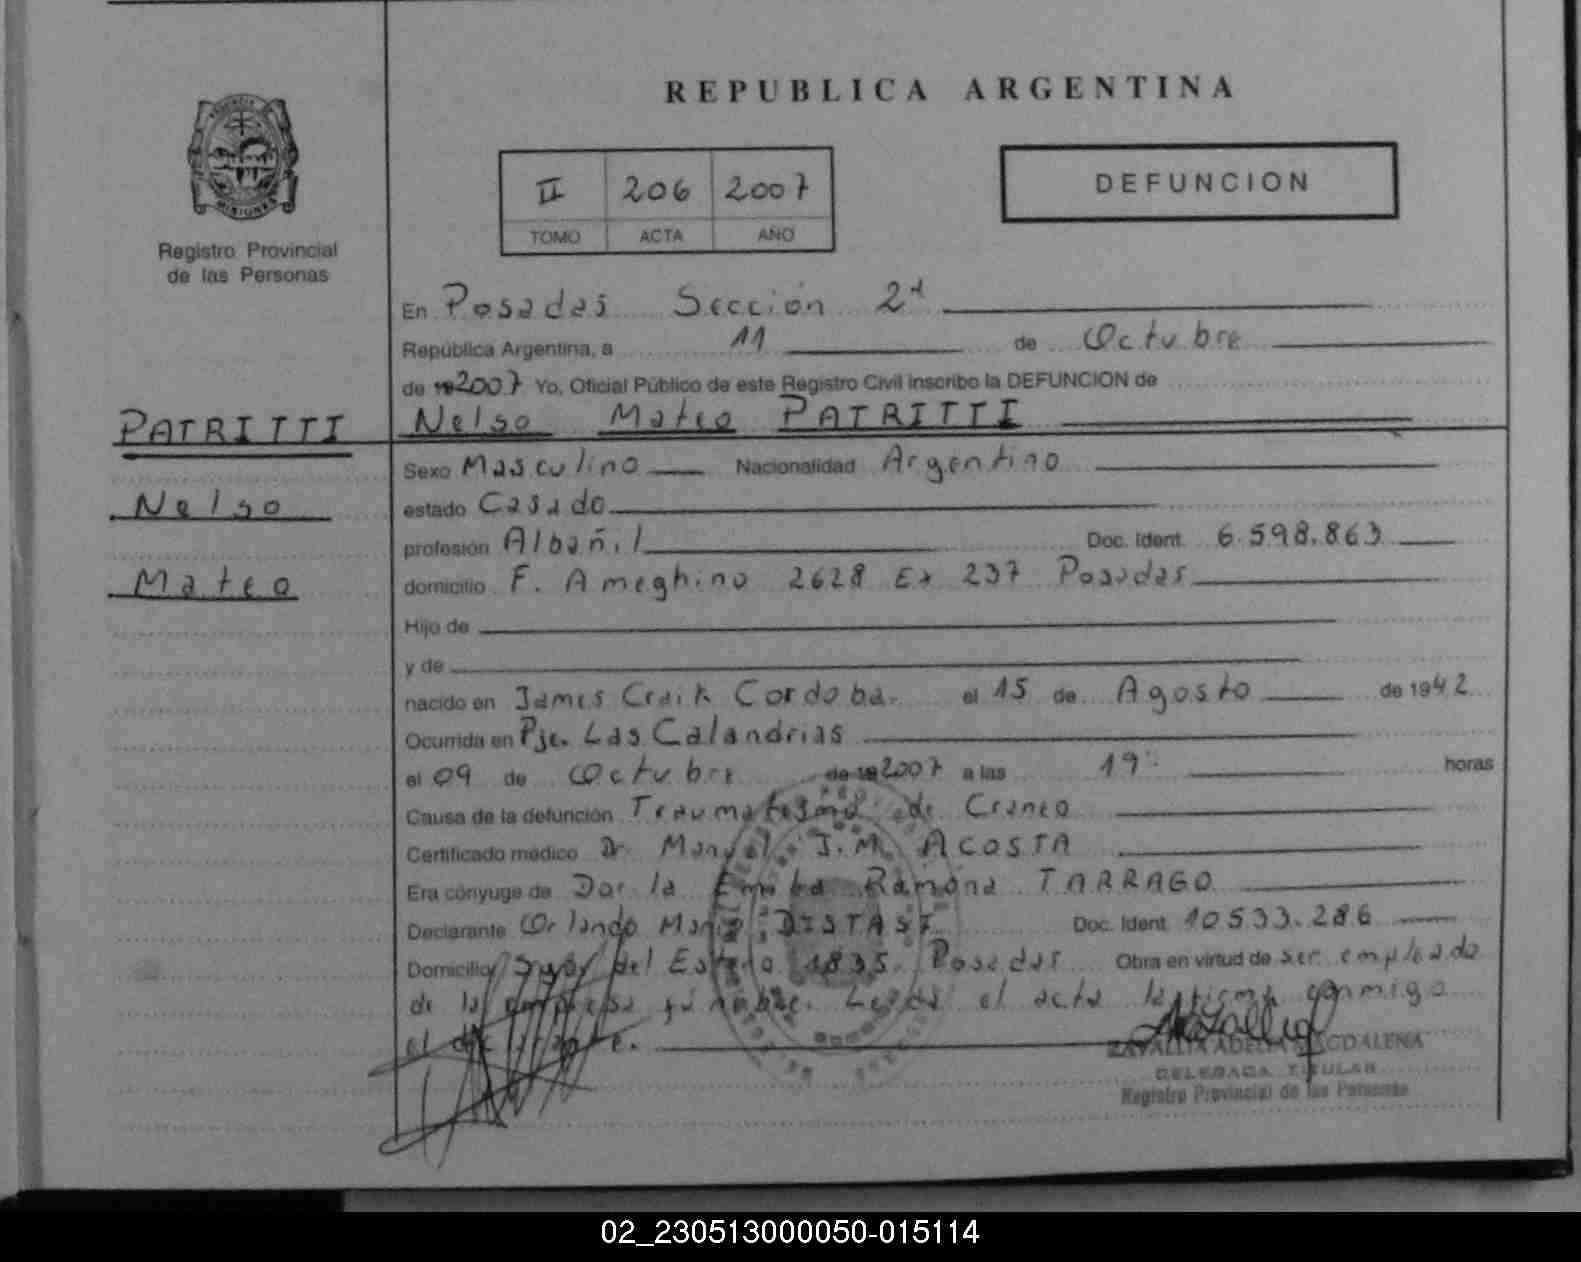 REPUBLICA ARGENTINA
MISIONES
Registro Provincial
de las Personas
II 206 2007
TOMO ACTA AÑO
DEFUNCION
En Posadas Sección 2ª
República Argentina, a 11 de Octubre
de 2007 Yo, Oficial Público de este Registro Civil inscribo la DEFUNCION de
PATRITTI
Nelso
Mateo
Nelso Mateo PATRITTI
Sexo Masculino Nacionalidad Argentino
estado Casado
profesión Albañil Doc. Ident. 6.598.863
domicilio F. Ameghino 2628 Ex 237 Posadas
Hijo de
y de
nacido en James Craik Cordoba. el 15 de Agosto de 1942
Ocurrida en Pje. Las Calandrias
el 09 de Octubre de 2007 a las 19 horas
Causa de la defunción Traumatismo de Craneo
Certificado médico Dr. Manuel J.M. ACOSTA
Era cónyuge de Dorila Ramona TARRAGO
Declarante Orlando Mario DISTASI Doc. Ident. 10533.286
Domicilio Sgo. del Estero 1835. Posadas Obra en virtud de ser empleado
de la empresa fúnebre. Leída el acta la firma conmigo
el declarante.
ZAVALLIA ADELIA MAGDALENA
DELEGADA TITULAR
Registro Provincial de las Personas
02_230513000050-015114